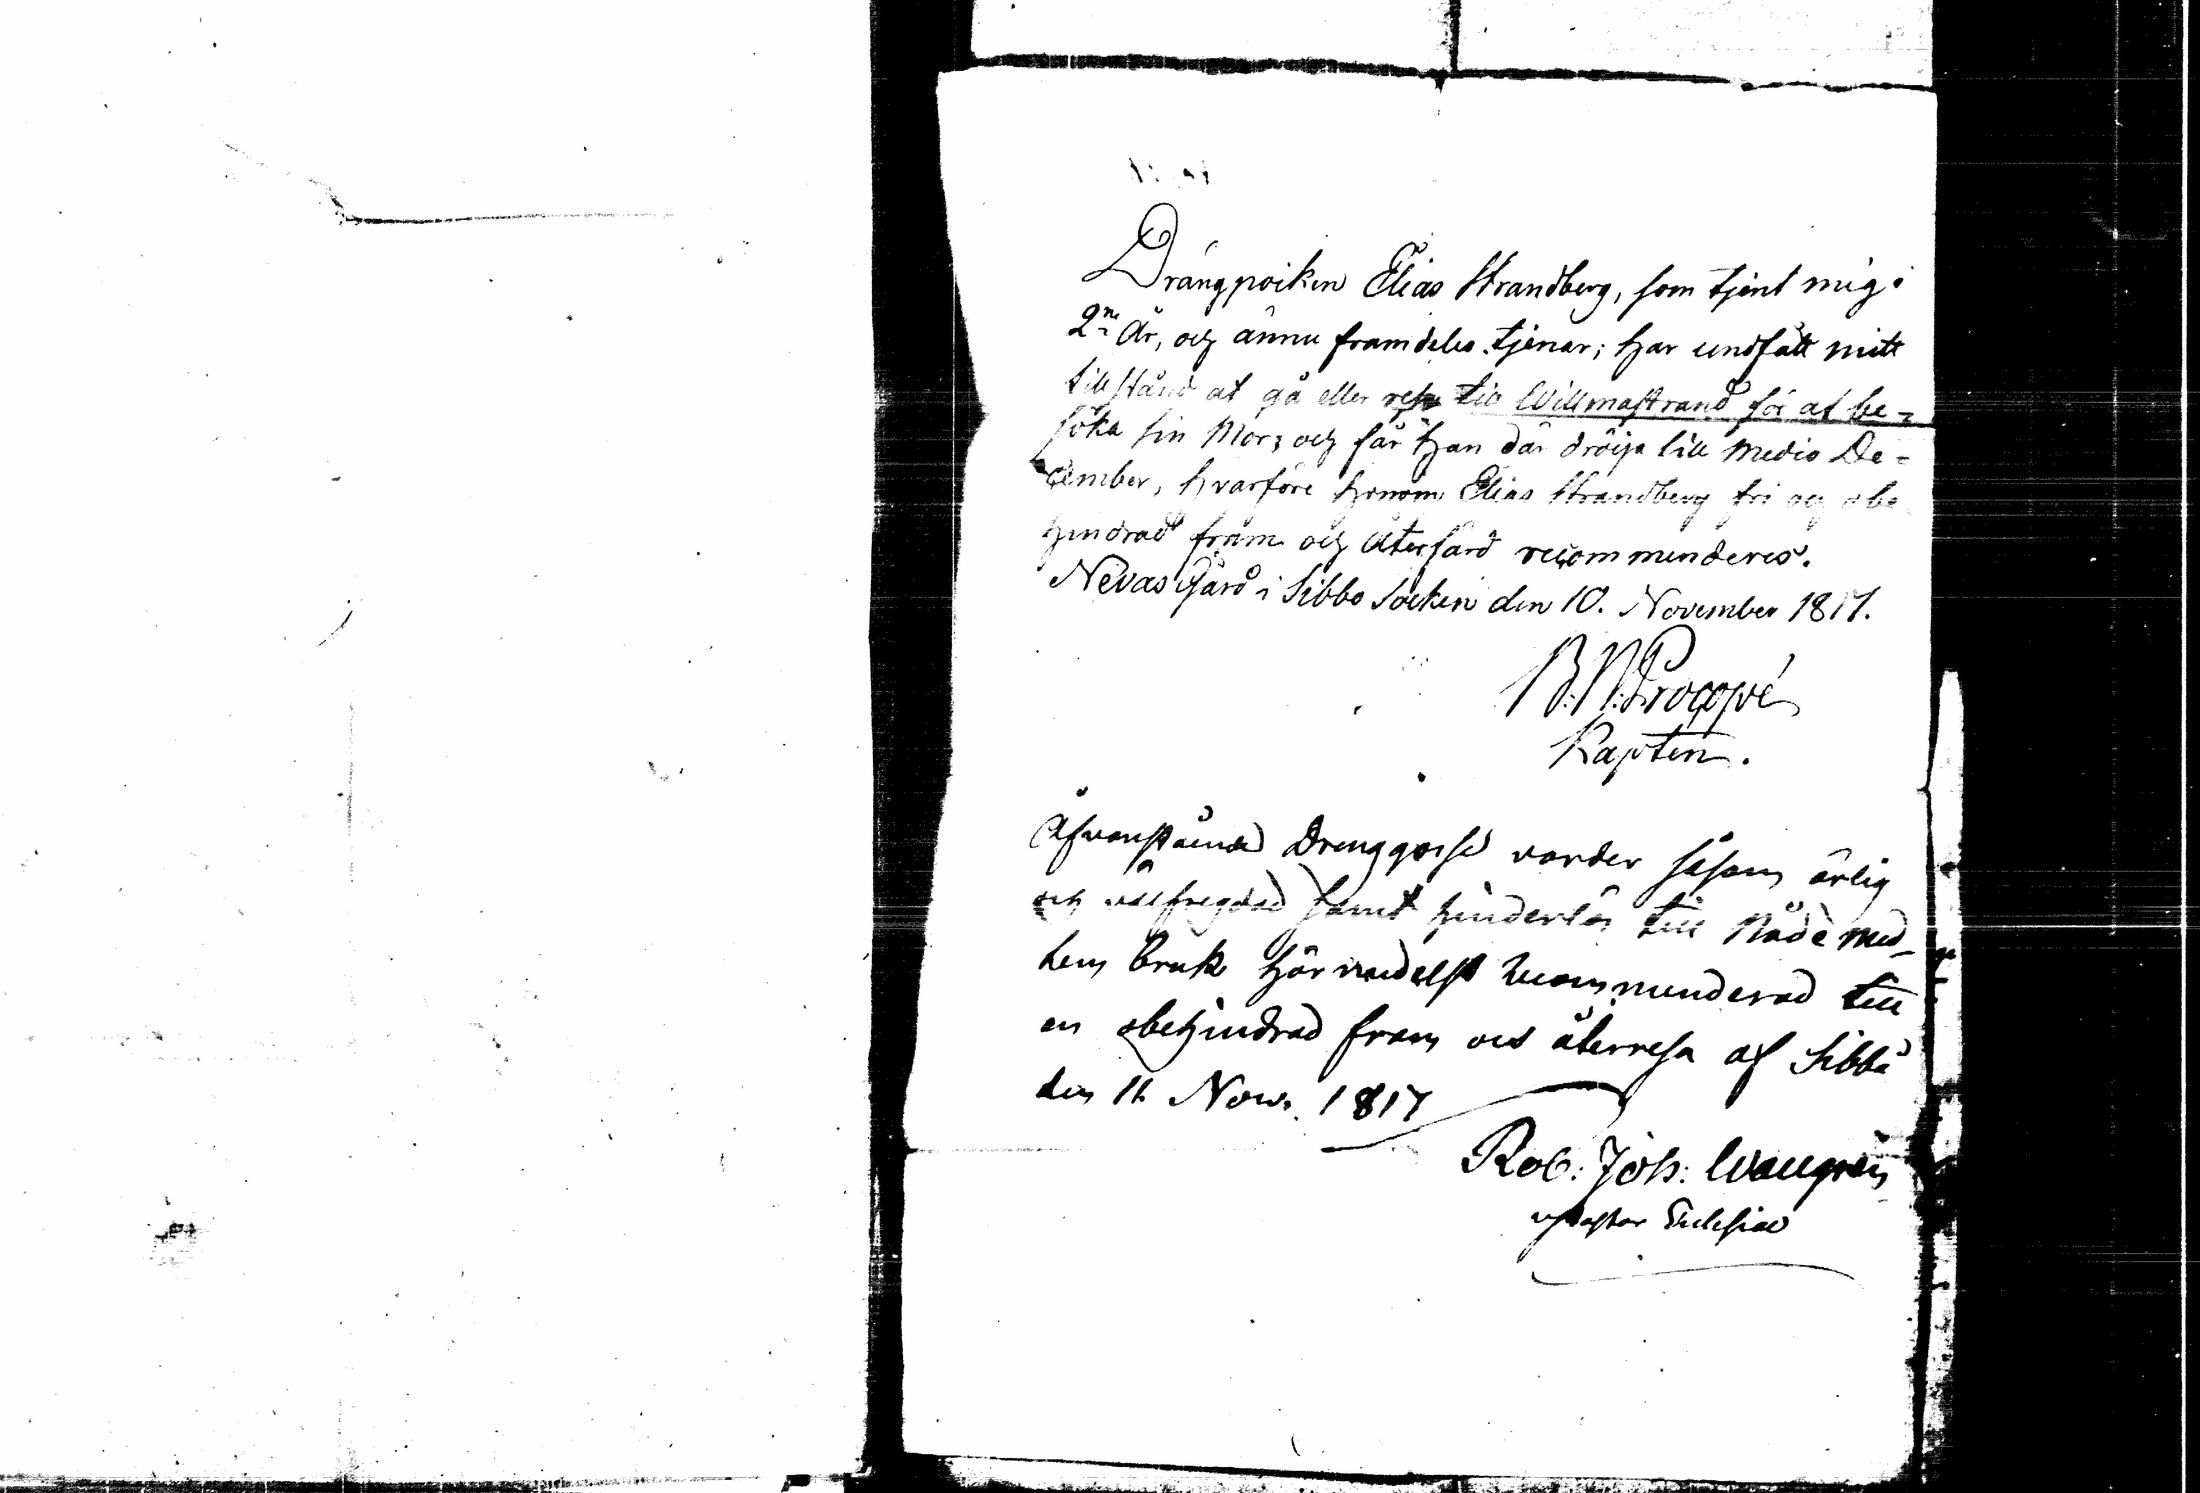 Drängpoiken Elias Strandberg, som tjent mig i
2ne År, och ännu framdeles tjenar; har undfått mitt
tillstånd at gå eller resa till Willmastrand för at be-
söka sin Mor; och får han där dröija till medio De-
cember, hvarföre honom Elias Strandberg fri och obe
hindrad fram och Återfärd recommenderes.
Nevas Gård i Sibbo Socken den 10. November 1817.
B: N: Procopé
Kapten.
Åfvanstående Drenggosse varder såsom ärlig
och välfregdad samt hinderlös till Nåde med-
lens bruk härmedelst recommenderad till
en obehindrad fram och återresa af Sibbå
den 11 Nov. 1817
Rob: Joh: Wallgrén
v Pastor Ecclesiae